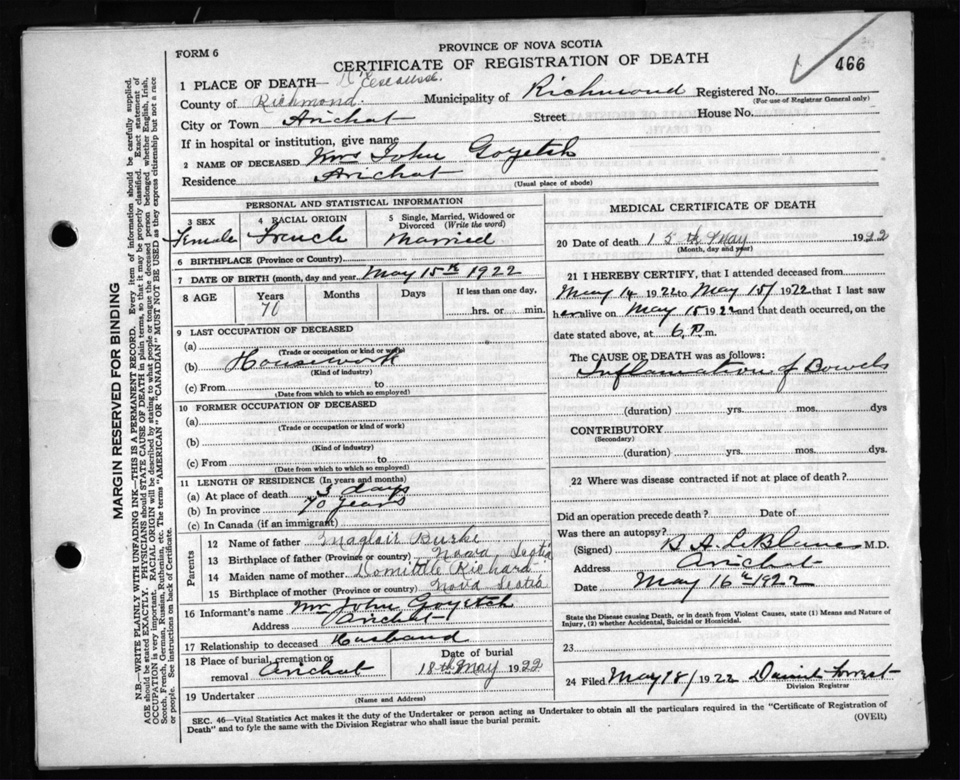 PROVINCE OF NOVA SCOTIA
FORM 6
CERTIFICATE OF REGISTRATION OF DEATH
466
1 PLACE OF DEATH—
County of Richmond. Municipality of Richmond Registered No.
(For use of Registrar General only)
City or Town Arichat Street House No.
If in hospital or institution, give name
2 NAME OF DECEASED Mrs John Goyetch
Residence Arichat
(Usual place of abode)
PERSONAL AND STATISTICAL INFORMATION
3 SEX
Female
4 RACIAL ORIGIN
French
5 Single, Married, Widowed or
Divorced (Write the word)
Married
6 BIRTHPLACE (Province or Country)
7 DATE OF BIRTH (month, day and year) May 15th 1922
8 AGE Years Months Days If less than one day,
70 hrs. or min.
9 LAST OCCUPATION OF DECEASED
(a)
(Trade or occupation or kind or work)
(b) Housework
(Kind of industry)
(c) From to
(Date from which to which so employed)
10 FORMER OCCUPATION OF DECEASED
(a)
(Trade or occupation or kind of work)
(b)
(Kind of industry)
(c) From to
(Date from which to which so employed)
11 LENGTH OF RESIDENCE (In years and months)
(a) At place of death days
(b) In province 70 years
(c) In Canada (if an immigrant)
Parents
12 Name of father Maglair Burke
13 Birthplace of father (Province or country) Nova Scotia
14 Maiden name of mother Domitile Richard
15 Birthplace of mother (Province or country) Nova Scotia
16 Informant's name Mr John Goyetch
Address Arichat
17 Relationship to deceased Husband
18 Place of burial, cremation or
removal Arichat
Date of burial
18th May 1922
19 Undertaker
(Name and Address)
MEDICAL CERTIFICATE OF DEATH
20 Date of death 15th May 1922
(Month, day and year)
21 I HEREBY CERTIFY, that I attended deceased from
May 14 1922 to May 15/ 1922 that I last saw
her alive on May 15 1922 and that death occurred, on the
date stated above, at 6 P.m.
The CAUSE OF DEATH was as follows:
Inflamation of Bowels
(duration) yrs. mos. dys
CONTRIBUTORY
(Secondary)
(duration) yrs. mos. dys.
22 Where was disease contracted if not at place of death?
Did an operation precede death? Date of
Was there an autopsy?
(Signed) B A LeBlanc M.D.
Address Arichat
Date May 16th 1922
State the Disease causing Death, or in death from Violent Causes, state (1) Means and Nature of
Injury, (2) whether Accidental, Suicidal or Homicidal.
23
24 Filed May 18/ 1922 Forrest
Division Registrar
SEC. 46—Vital Statistics Act makes it the duty of the Undertaker or person acting as Undertaker to obtain all the particulars required in the "Certificate of Registration of
Death" and to fyle the same with the Division Registrar who shall issue the burial permit.
(OVER)
MARGIN RESERVED FOR BINDING
N.B.—WRITE PLAINLY WITH UNFADING INK—THIS IS A PERMANENT RECORD. Every item of information should be carefully supplied.
AGE should be stated EXACTLY. PHYSICIANS should STATE CAUSE OF DEATH in plain terms, so that it may be properly classified. Exact statement of
OCCUPATION is very important. RACIAL ORIGIN will be described by stating to what people or tongue the deceased person belonged whether English, Irish,
Scotch, French, German, Russian, Ruthenian, etc. The terms "AMERICAN" OR "CANADIAN" MUST NOT BE USED as they express citizenship but not a race
or people. See instructions on back of Certificate.